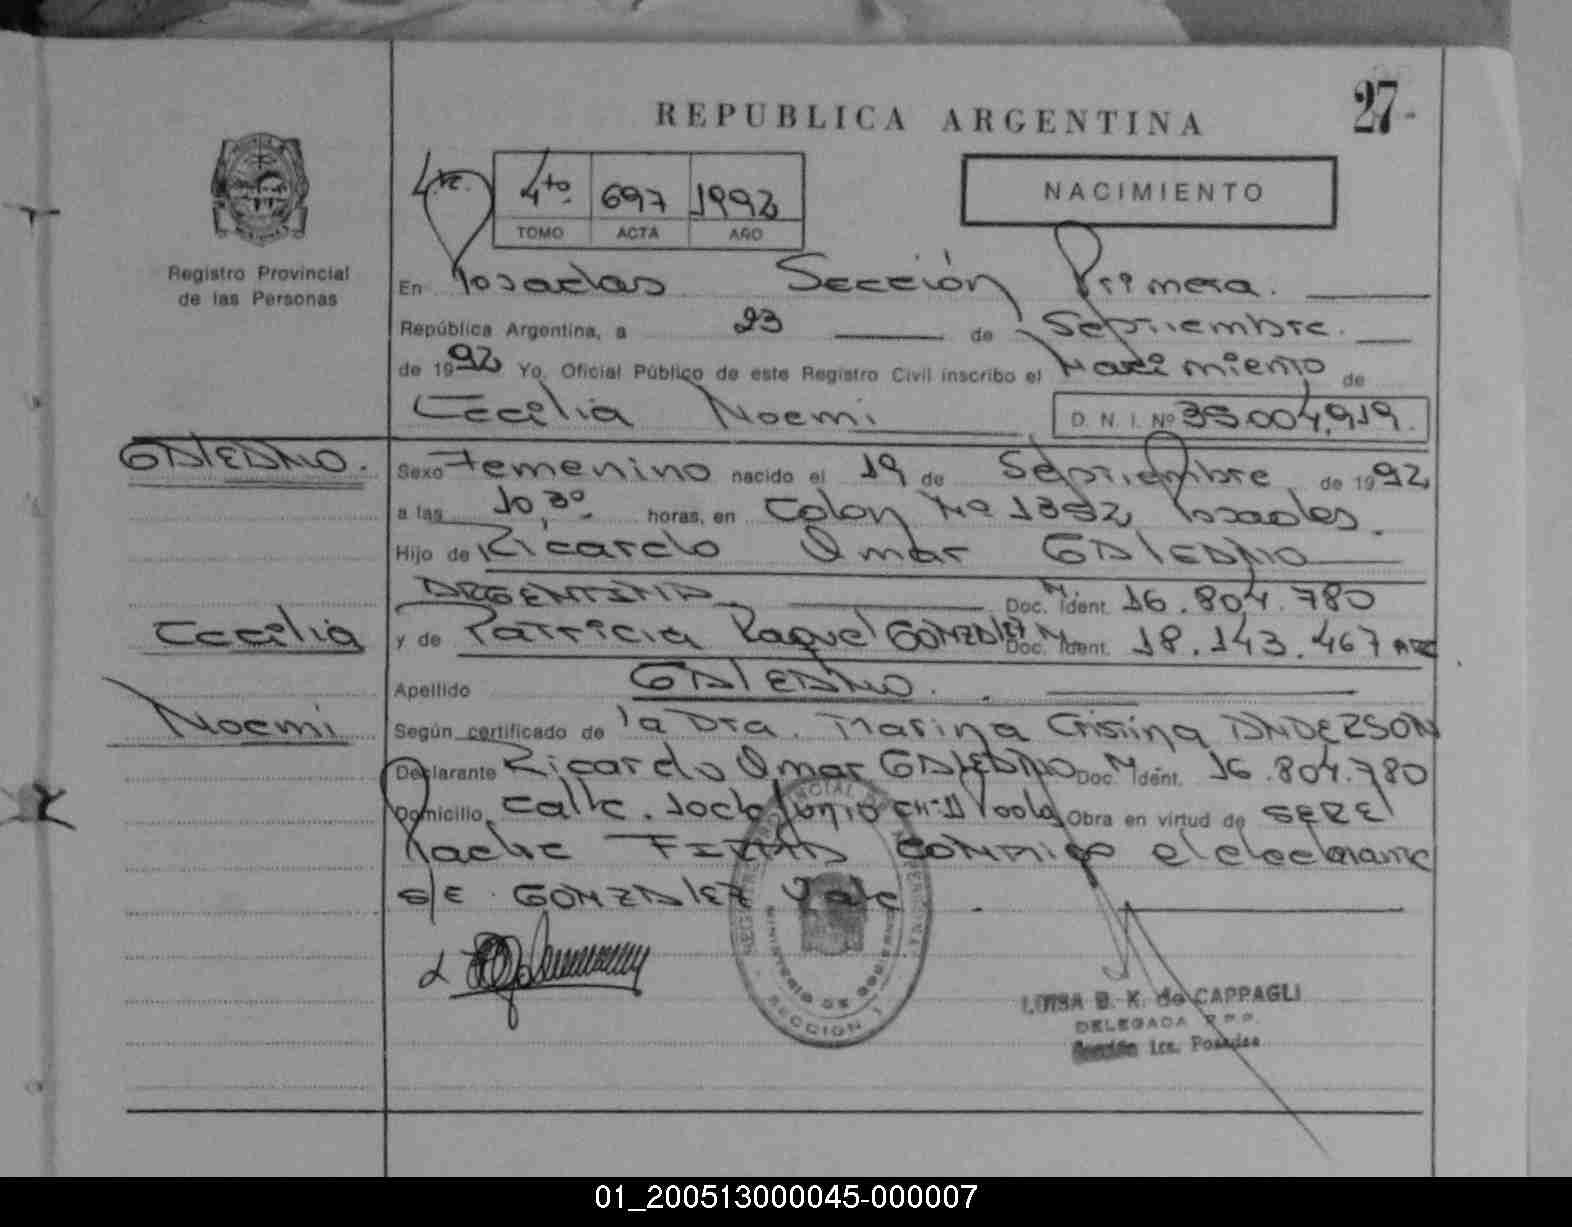 27
REPUBLICA ARGENTINA
4to. 697 1992
TOMO ACTA AÑO
NACIMIENTO
Registro Provincial
de las Personas
En Posadas Sección Primera.
República Argentina, a 23 de Septiembre.
de 1992 Yo, Oficial Público de este Registro Civil inscribo el Nacimiento de
Cecilia Noemi D. N. I. Nº
GALEANO.
Sexo Femenino nacido el 19 de Septiembre de 1992
a las 10,30 horas, en Colon Nº Posadas.
Hijo de Ricardo Omar GALEANO
ARGENTINA Doc. Ident. 16.804.780
Cecilia
y de Patricia Raquel GONZALEZ Doc. Ident. 18.143.467 ARG
Apellido GALEANO.
Noemi
Según certificado de la Dra. Marina Cristina ANDERSON
Declarante Ricardo Omar GALEANO Doc. Ident. 16.804.780
Domicilio calle Obra en virtud de SER El
Padre FIRMA CONMIGO el declarante
s/E GONZALEZ Vale
REGISTRO PROVINCIAL DE LAS PERSONAS
MINISTERIO DE GOBIERNO
SECCION 1
LUISA B. K. de CAPPAGLI
DELEGADA R.P.P.
Sección 1ra. Posadas
01_200513000045-000007